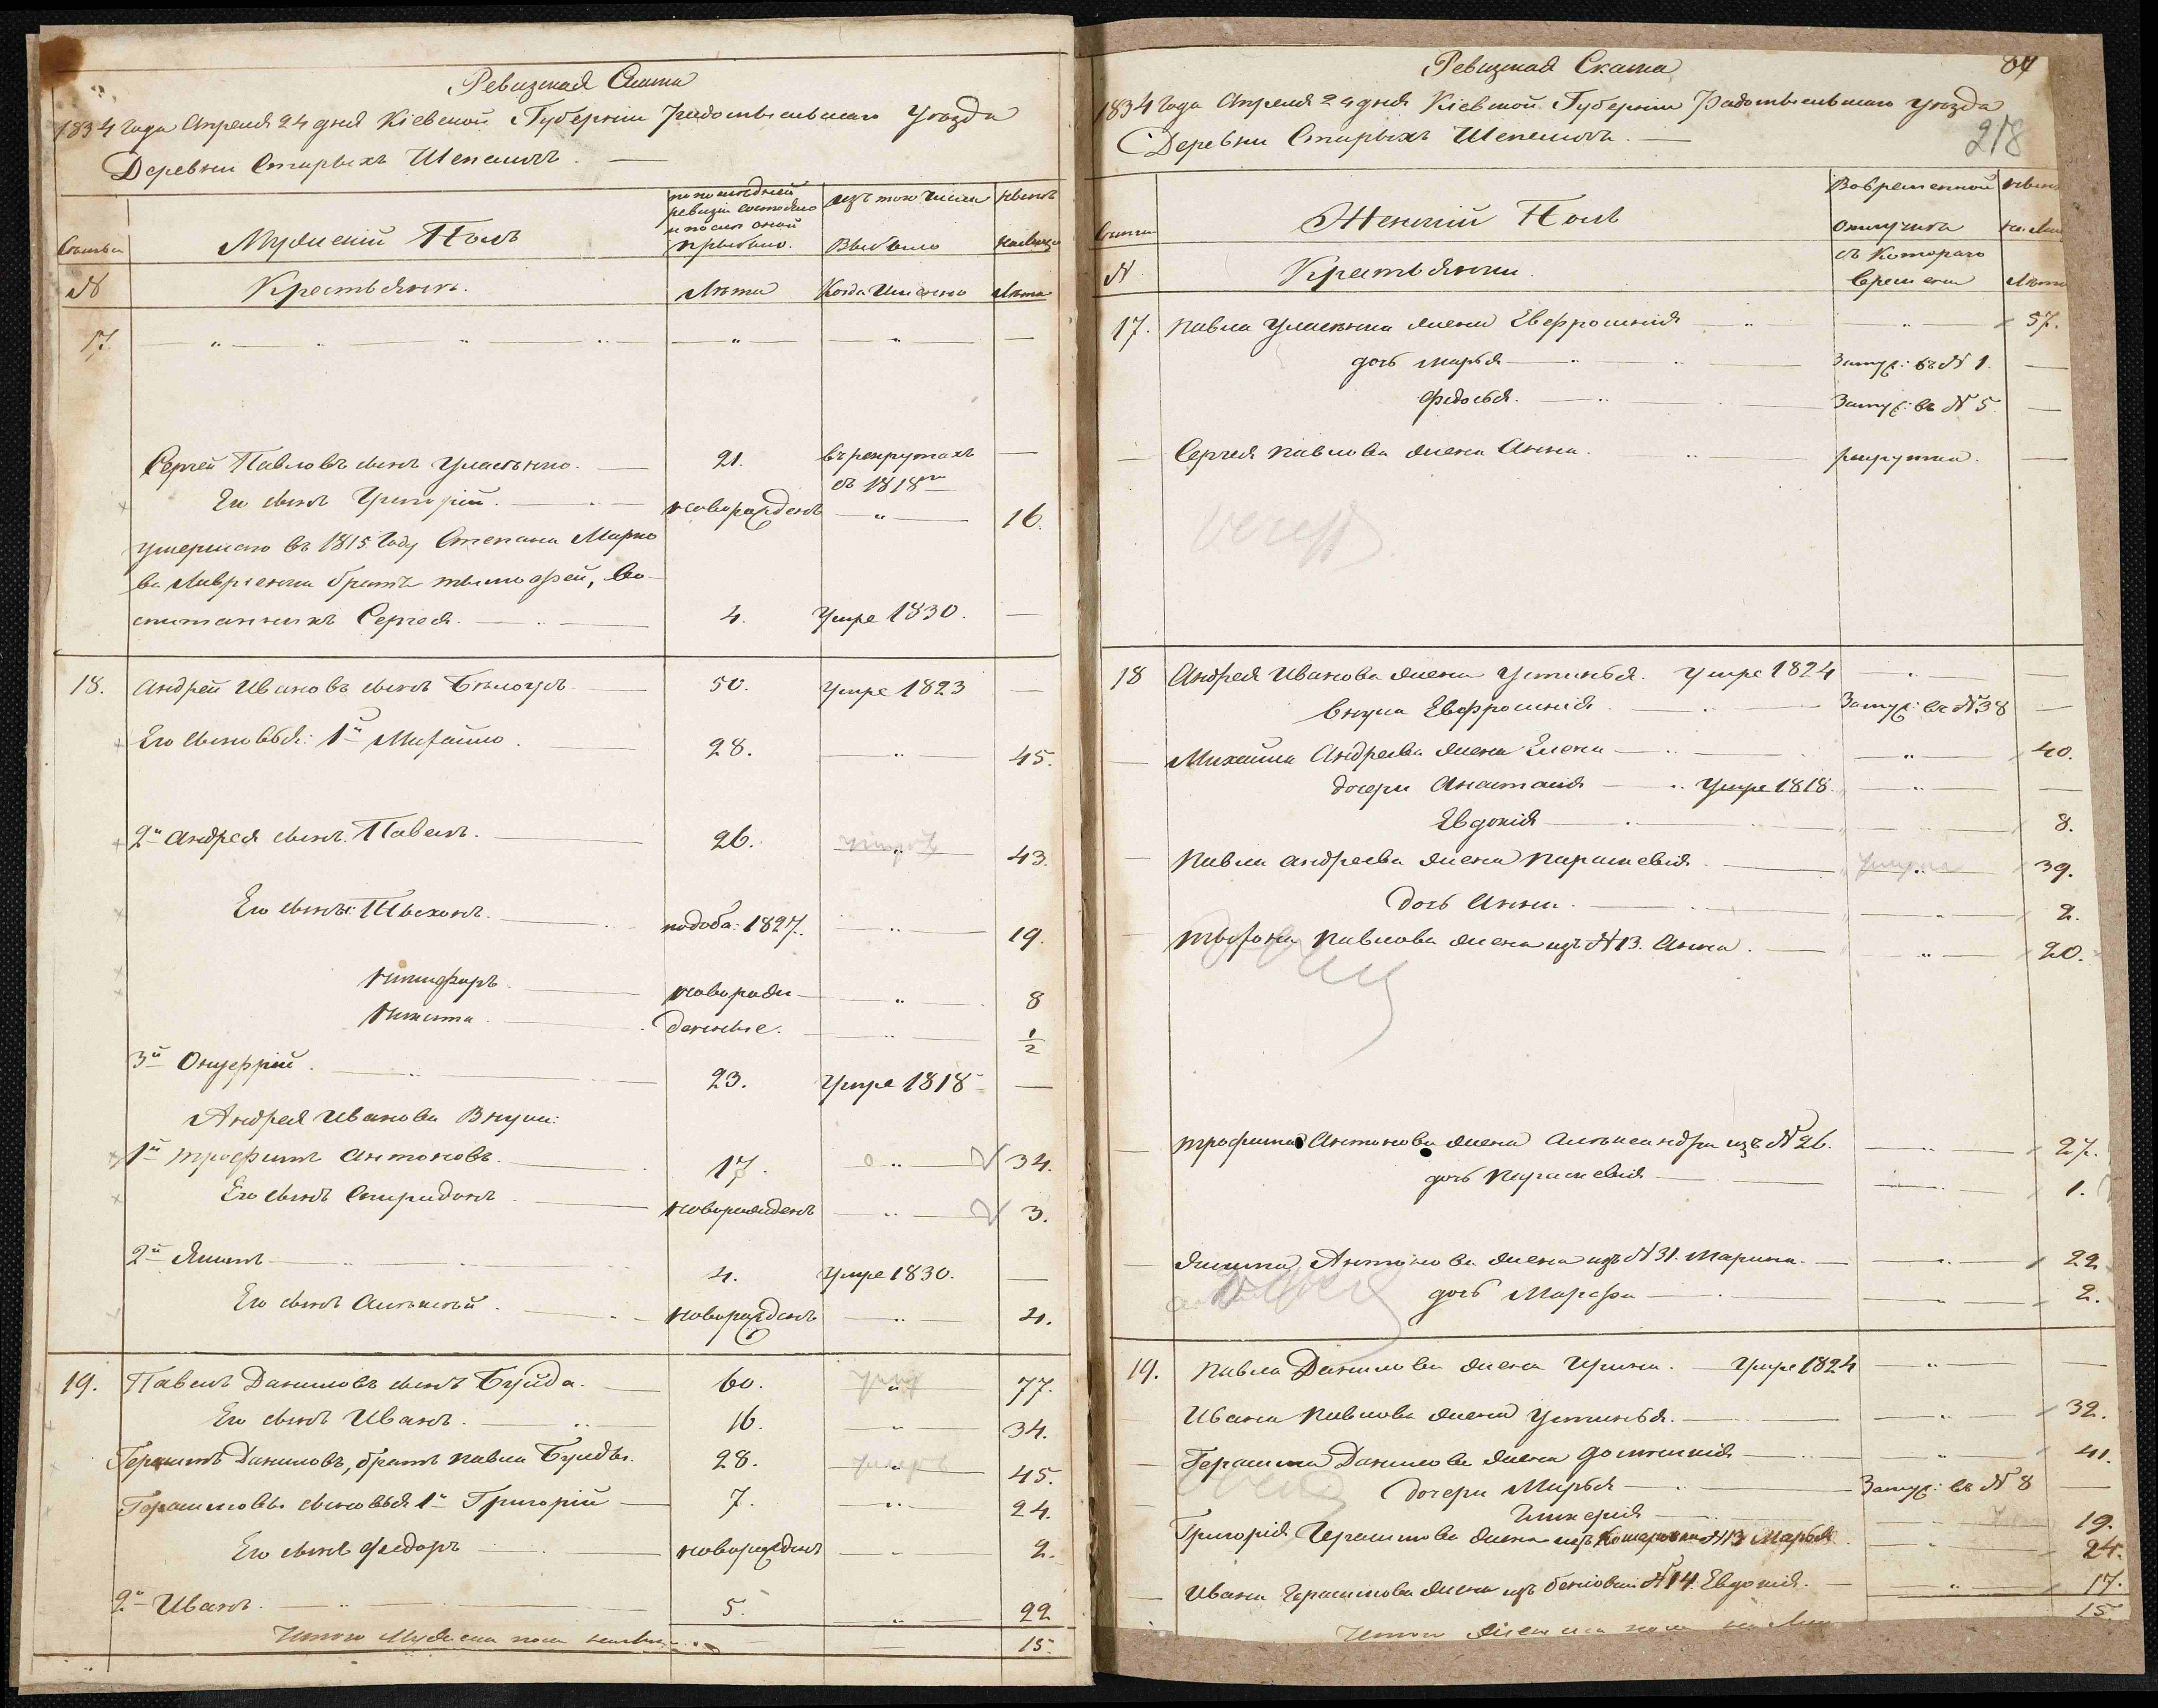 Ревизская Скаска
1834 года Апреля 24 дня Кіевской Губерніи Радомысльскаго уезда
Деревни Старыхъ Шепеличъ.
Семьи
Мужескій Полъ
по последней ревизіи состояло и после оной прибыло.
изъ того числа Выбыло
ныне налицо
№
Крестьянъ.
Лета
Когда Именно
Лета
17.
Сергей Павловъ сынъ Уласенко. 21. въ рекрутахъ съ 1818го
Его сынъ Григорій. новорожденъ 16.
умершаго въ 1815 году Степана Марко
ва Лавріенка братъ тымофей, во
спитанникъ Сергея. 4. Умре 1830.
18. Андрей Ивановъ сынъ Белоусъ 50. умре 1823
Его сыновья: 1й Михайло. 28. 45.
2й Андрея сынъ Павелъ. 26. 43.
Его сынъ: Тыхонъ. 1827. 19.
Никифоръ. новорож 8
Никита. денные. 1/2
3й Онуфрій. 23. Умре 1818
Андрея Иванова Внуки:
1й Трофимъ Антоновъ. 17. 34.
Его сынъ Спиридонъ новорожденъ 3.
2й Якимъ 4. Умре 1830.
Его сынъ Алексей. новорожденъ 4.
19. Павелъ Даниловъ сынъ Буйда. 60. 77.
Его сынъ Иванъ. 16. 34.
Герасимъ Даниловъ, братъ павла Буйды. 28. 45.
Герасимовы сыновья 1й Григорій 7. 24.
Его сынъ Федоръ новорожденъ 2.
2й Иванъ. 5. 22
Итого Мужеска пола налицо 15.
Ревизская Скаска
84
1834 года Апреля 24 дня Кіевской Губерніи Радомысльскаго уезда
218
Деревни Старыхъ Шепеличъ.
Семьи
Женскій Полъ
Во временной отлучке
№
Крестьянки.
съ Котораго Времени
Лета
17. павла Уласенка жена Евфросинія 57.
дочь марья Замуж: въ № 1.
Федосья. Замуж: въ № 5
Сергея павлова жена Анна. рекрутка.
18 Андрея Иванова жена Устинья. Умре 1824
внука Евфросинія. Замуж: въ № 38
Михайла Андреева жена Елена 40.
дочери Анастасія Умре 1818.
Евдокія 8.
павла андреева жена параскевія. 39.
дочь Анна. 2.
тыхона павлова жена изъ № 13. Анна. 20.
трофима Антонова жена Александра изъ № 26. 27.
дочь параскевія 1.
Якима Антонова жена изъ № 31. Марина. 22
дочь Марфа 2.
19. павла Данилова жена Ирина. Умре 1824
Ивана павлова жена Устинья. 32.
Герасима Данилова жена домникія 41.
дочери Марья Замуж: въ № 8
19.
Григорія Герасимова жена изъ № 13 Марья 24.
Ивана Герасимова жена изъ № 14. Евдокія. 17.
Итого Женска пола налицо 15